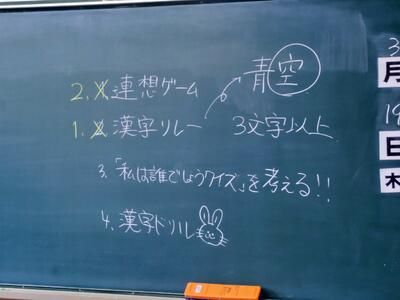 青空
2. 連想ゲーム
1. 漢字リレー 3文字以上
3.「私は誰でしょうクイズ」を考える!!
4. 漢字ドリル
3
月
19
日
木